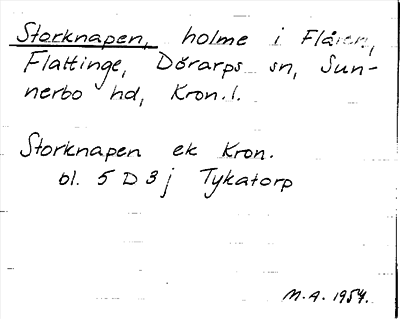 Storknapen, holme i Flåren,
Flattinge, Dörarps sn, Sun-
nerbo hd, Kron.l.
Storknapen ek Kron.
bl. 5 D 3 j Tykatorp
M.A. 1954.